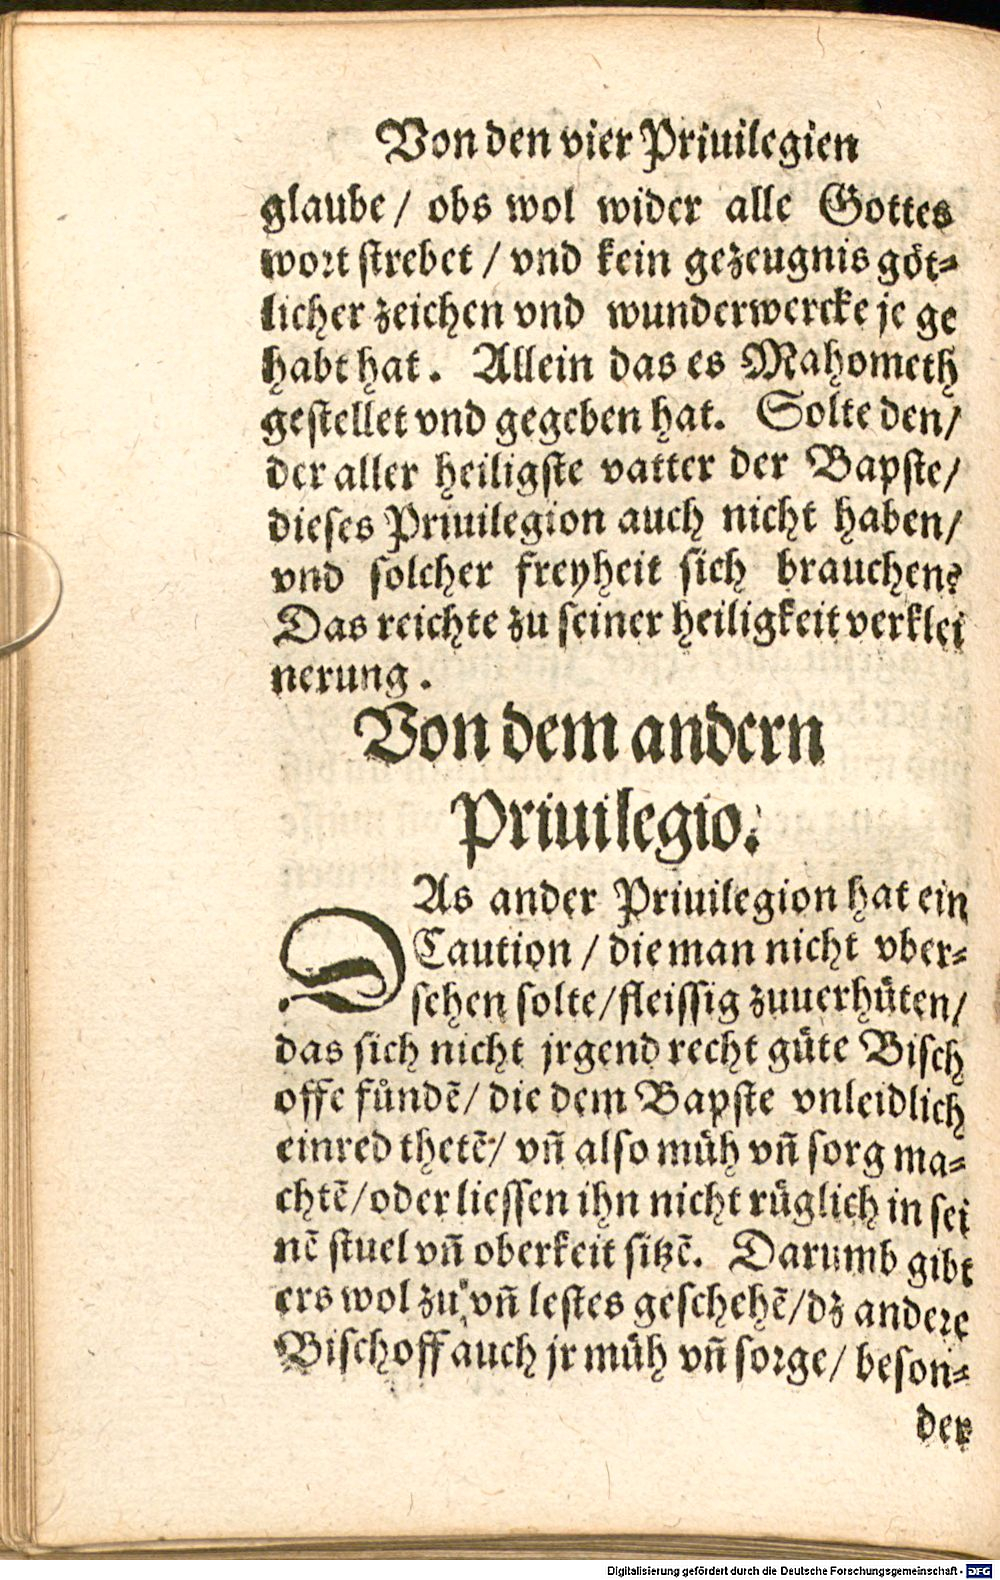 Von den vier Priuilegien
glaube / obs wol wider alle Gottes
wort strebet / vnd kein gezeugnis göt-
licher zeichen vnd wunderwercke je ge
habt hat. Allein das es Mahometh
gestellet vnd gegeben hat. Solte den/
der aller heiligste vatter der Bapste/
dieses Priuilegion auch nicht haben/
vnd solcher freyheit sich brauchen?
Das reichte zu seiner heiligkeit verklei
nerung.
Von dem andern
Priuilegio.
DAs ander Priuilegion hat ein
Caution / die man nicht vber-
sehen solte/fleissig zuuerhüten/
das sich nicht jrgend recht güte Bisch
offe fündē/ die dem Bapste vnleidlich
einred thetē/ vñ also müh vñ sorg ma-
chtē/oder liessen ihn nicht rüglich in sei
nē stuel vñ oberkeit sitzē. Darumb gibt
ers wol zu, vñ lestes geschehē/dz andere
Bischoff auch jr müh vñ sorge/ beson-
der
Digitalisierung gefördert durch die Deutsche Forschungsgemeinschaft - DFG